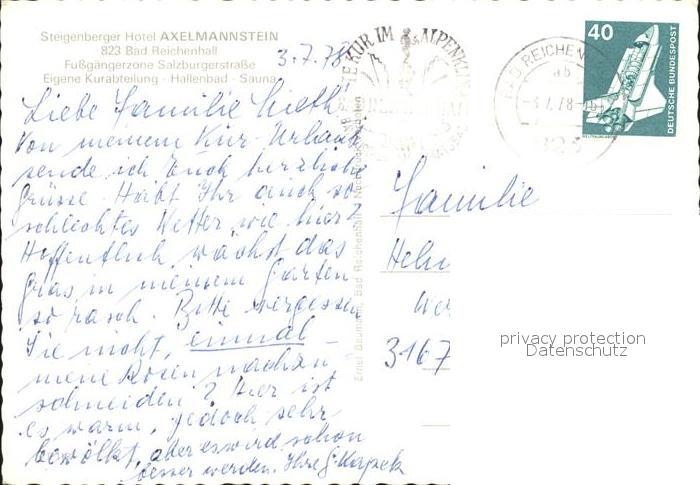 Steigenberger Hotel AXELMANNSTEIN
823 Bad Reichenhall
Fußgängerzone Salzburgerstraße
Eigene Kurabteilung - Hallenbad - Sauna
3.7.78
Liebe Familie
Von meinem Kur-Urlaub
sende ich Euch herzliche
Grüsse. Habt Ihr auch so
schlechtes Wetter wie hier?
Hoffentlich wächst das
Gras in meinem Garten
so rasch. Bitte vergessen
Sie nicht, einmal
meine Rosen nachzu-
schneiden? Hier ist
es warm, jedoch sehr
bewölkt, aber es wird schon
besser werden. Ihre
Bad Reichenhall
KUR IM ALPENKLIMA
BAD REICHEN
-3.7.78
40
DEUTSCHE BUNDESPOST
Familie
Helm
3167
privacy protection
Datenschutz